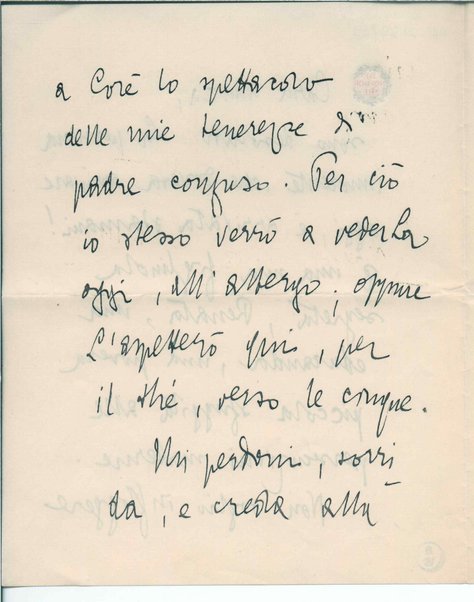 a Corè lo spettacolo
delle mie tenerezze di
padre confuso. Per ciò
io stesso verrò a vederLa
oggi, all'albergo; oppure
L'aspetterò qui, per
il thé, verso le cinque.
Mi perdoni, sorri
da, e creda alla